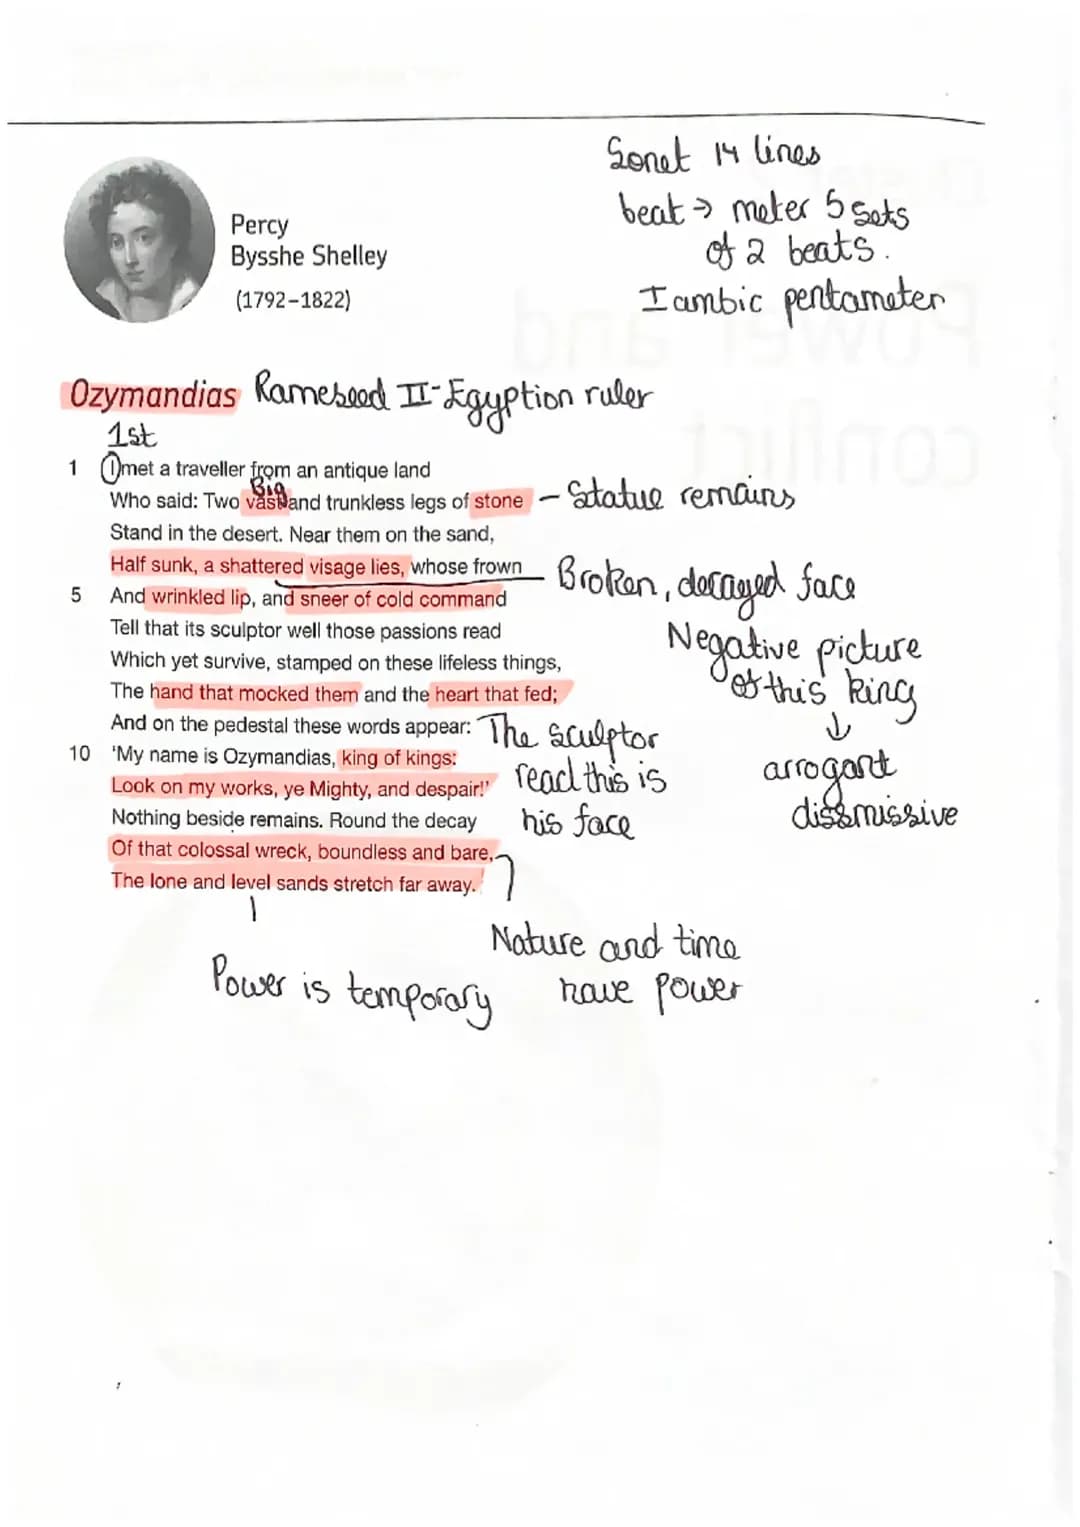 Sonet 14 lines
beat → meter 5 sets
of 2 beats.
Iambic pentameter
Percy
Bysshe Shelley
(1792–1822)
Ozymandias Rameseed II - Egyption ruler
1st
1 I met a traveller from an antique land
Big
Who said: Two vast and trunkless legs of stone – Statue remains
Stand in the desert. Near them on the sand,
Half sunk, a shattered visage lies, whose frown
Broken, decayed face
5 And wrinkled lip, and sneer of cold command
Tell that its sculptor well those passions read
Which yet survive, stamped on these lifeless things,
The hand that mocked them and the heart that fed;
Negative picture
of this king
↓
arrogant
dissmissive
And on the pedestal these words appear:
10 'My name is Ozymandias, king of kings:
Look on my works, ye Mighty, and despair!'
The sculptor
read this is
his face
Nothing beside remains. Round the decay
Of that colossal wreck, boundless and bare,
The lone and level sands stretch far away.'
Nature and time
have power
Power is temporary
Power and
conflict